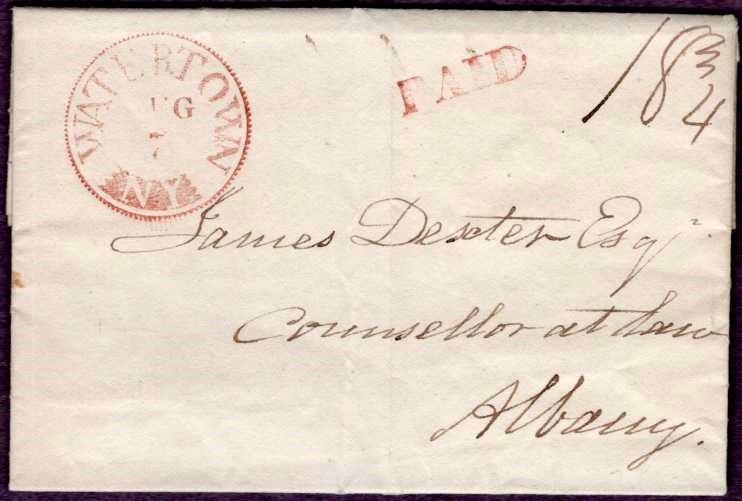 WATERTOWN
UG
7
NY
PAID
18 3/4
James Dexter Esqr
Counsellor at law
Albany.